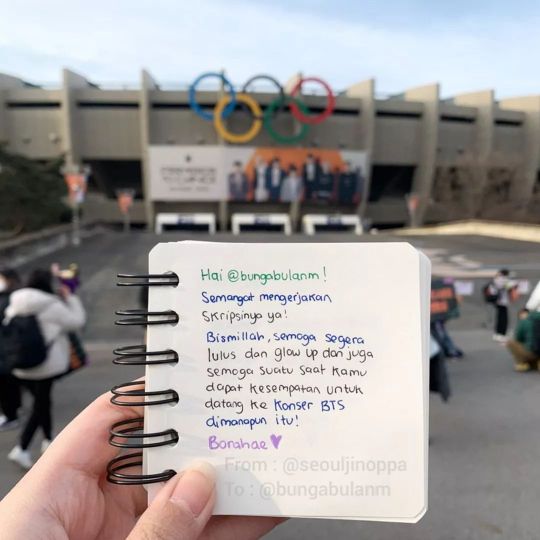 Hai @bungabulanm!
Semangat mengerjakan
Skripsinya ya!
Bismillah, semoga segera
lulus dan glow up dan juga
semoga suatu saat kamu
dapat kesempatan untuk
datang ke Konser BTS
dimanapun itu!
Borahae
From : @seouljinoppa
To : @bungabulanm